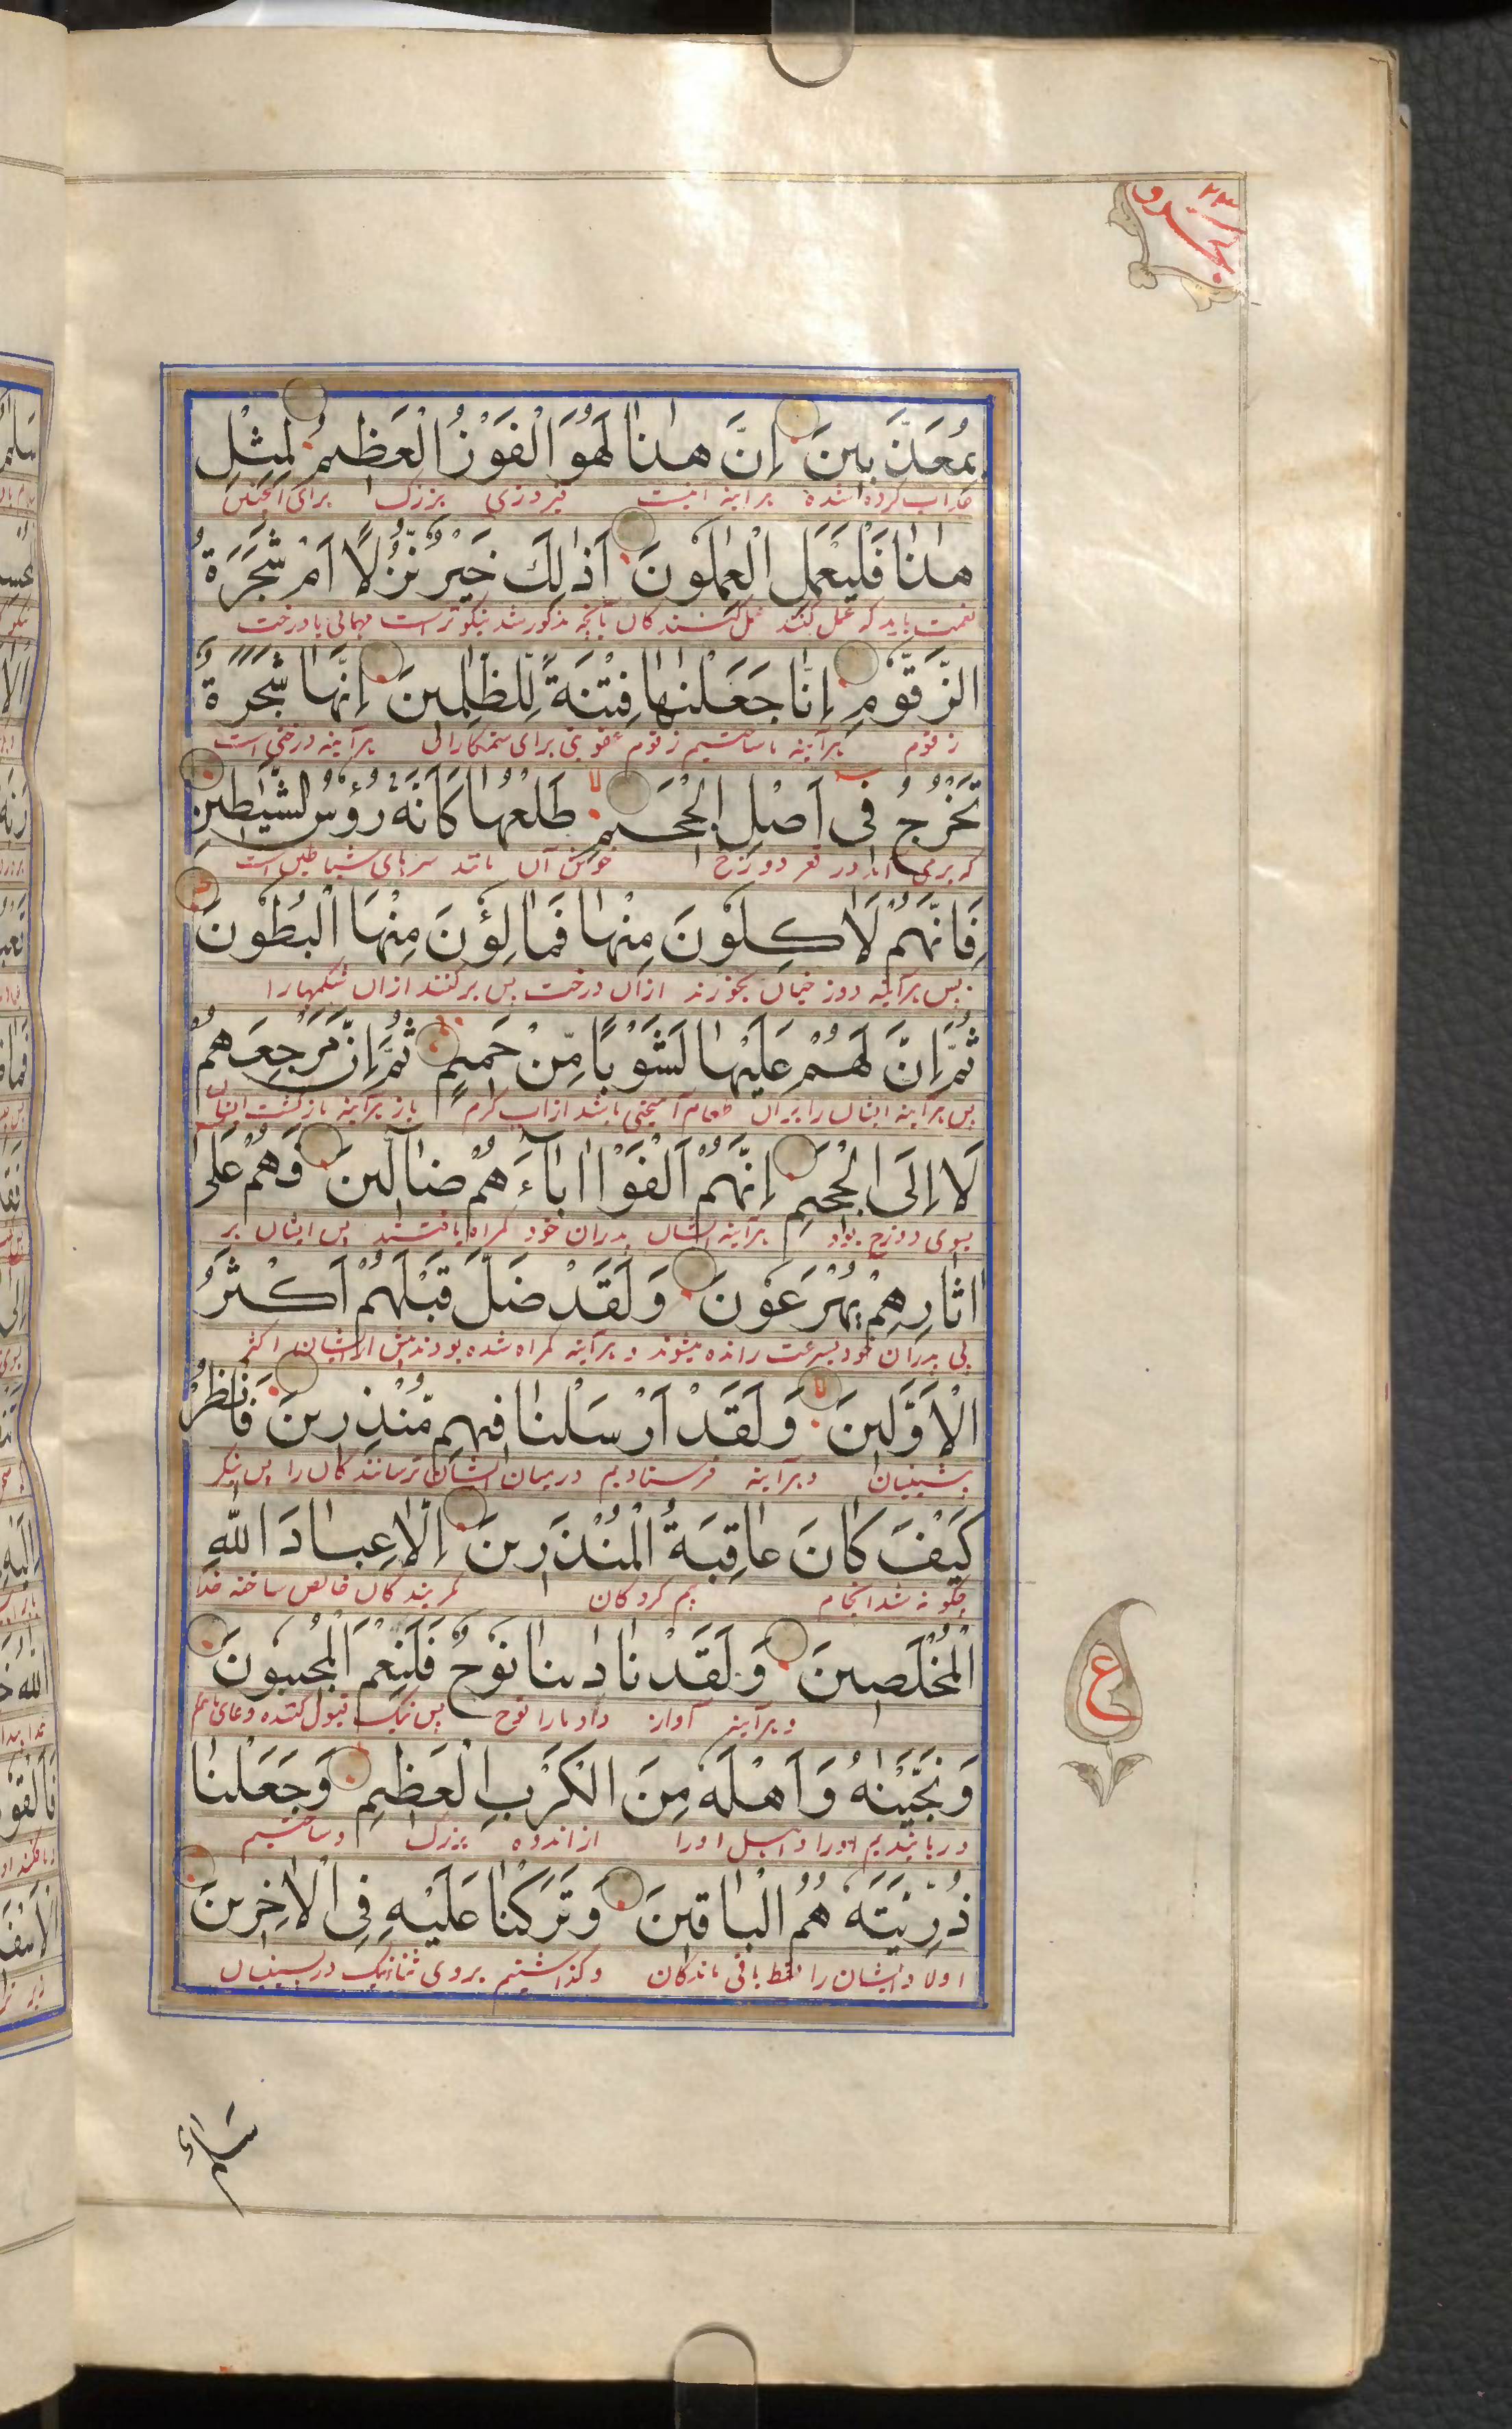 الجزو ٢٣
بِمُعَذَّبِينَ إِنَّ هٰذَا لَهُوَ الْفَوْزُ الْعَظِيمُ لِمِثْلِ
عذاب کرده شده برآینه اینست فیروزی بزرگ برای اینچنین
هٰذَا فَلْيَعْمَلِ الْعٰمِلُونَ أَذٰلِكَ خَيْرٌ نُّزُلًا أَمْ شَجَرَةُ
نعمت باید که عمل کنند عمل کنندکان آیا آنچه مذکور شد نیکوتر است مهمانی یا درخت
الزَّقُّومِ إِنَّا جَعَلْنٰهَا فِتْنَةً لِّلظّٰلِمِينَ إِنَّهَا شَجَرَةٌ
زقوم برآینه ما ساختیم زقوم عقوبتی برای ستمکاران برآینه درختی است
تَخْرُجُ فِي أَصْلِ الْجَحِيمِ لا طَلْعُهَا كَأَنَّهُ رُءُوسُ الشَّيٰطِينِ
که برمی آید در قعر دوزخ خوشهٔ آن مانند سرهای شیاطین است
فَإِنَّهُمْ لَاٰكِلُونَ مِنْهَا فَمَالِؤُنَ مِنْهَا الْبُطُونَ
پس برآینه دوزخیان بخورند ازان درخت پس پرکنند ازان شکمها را
ثُمَّ إِنَّ لَهُمْ عَلَيْهَا لَشَوْبًا مِّنْ حَمِيمٍ ثُمَّ إِنَّ مَرْجِعَهُمْ
پس برآینه ایشان را بران طعام آمیختنی باشد از آب کرم باز برآینه بازکشت ایشان
لَا إِلَى الْجَحِيمِ إِنَّهُمْ أَلْفَوْا اٰبَآءَهُمْ ضَآلِّينَ فَهُمْ عَلٰى
بسوی دوزخ بود برآینه ایشان پدران خود کمراه یافتند پس ایشان بر
اٰثَارِهِمْ يُهْرَعُونَ وَلَقَدْ ضَلَّ قَبْلَهُمْ أَكْثَرُ
پی پدران خود بسرعت رانده میشوند و برآینه کمراه شده بودند پیش از ایشان اکثر
الْأَوَّلِينَ لا وَلَقَدْ أَرْسَلْنَا فِيهِم مُّنْذِرِينَ فَانْظُرْ
پیشینیان و برآینه فرستادیم درمیان ایشان ترسانندکان را پس بنکر
كَيْفَ كَانَ عَاقِبَةُ الْمُنْذَرِينَ إِلَّا عِبَادَ اللهِ
چکونه شد انجام بیم کردکان مکر بندکان خالص ساخته خدا
الْمُخْلَصِينَ وَلَقَدْ نَادٰىنَا نُوحٌ فَلَنِعْمَ الْمُجِيبُونَ
و برآینه آواز داد مارا نوح پس نیک قبول کننده دعای
وَنَجَّيْنٰهُ وَأَهْلَهُ مِنَ الْكَرْبِ الْعَظِيمِ وَجَعَلْنَا
و رهانیدیم اورا و اهل اورا از اندوه بزرک و ساختیم
ذُرِّيَّتَهُ هُمُ الْبَاقِينَ وَتَرَكْنَا عَلَيْهِ فِي الْاٰخِرِينَ
اولاد ایشان را فقط باقی ماندکان و کذاشتیم بروی ثنای نیک در پسینیان
ع
سلام